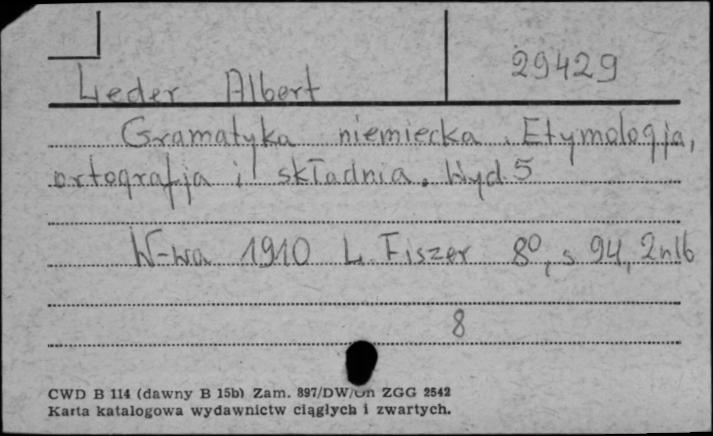 29429
Leder Albert
Gramatyka niemiecka. Etymologja,
ortografja i składnia. Wyd. 5
W-wa 1910 L. Fiszer 8°, s 94, 2nlb
8
CWD B 114 (dawny B 15b) Zam. 897/DW/Un ZGG 2542
Karta katalogowa wydawnictw ciągłych i zwartych.